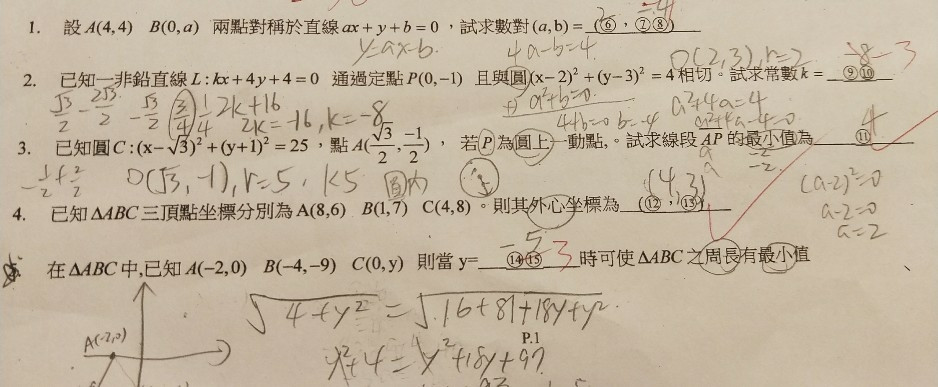 1. 設 A(4,4) B(0,a) 兩點對稱於直線 ax+y+b=0，試求數對(a,b)= (⑥，⑦⑧)
2 -4
y=ax-b.
4a-b=4.
O(2,3), r=2
-8 -3
2. 已知一非鉛直線 L:kx+4y+4=0 通過定點 P(0,-1) 且與圓(x-2)²+(y-3)²=4 相切。試求常數 k= ⑨⑩
2k+16
2k=-16, k=-8
a²+b=0.
4+b=0 b=-4
a²+4a=4
a²+4a-4=0
4
3. 已知圓 C:(x-√3)²+(y+1)²=25，點 A(√3/2, -1/2)，若 P 為圓上一動點,。試求線段 AP 的最小值為 ⑪
O(√3, -1), r=5, <5 圓內
(4,3)
(a-2)²=0
a-2=0
a=2
4. 已知 ΔABC 三頂點坐標分別為 A(8,6) B(1,7) C(4,8)。則其外心坐標為 (⑫，⑬)
-5 3
在 ΔABC 中,已知 A(-2,0) B(-4,-9) C(0,y) 則當 y= ⑭⑮ 時可使 ΔABC 之周長有最小值
√4+y² = √16+81+18y+y².
P.1
A(-2,0)
y²+4=y²+18y+97